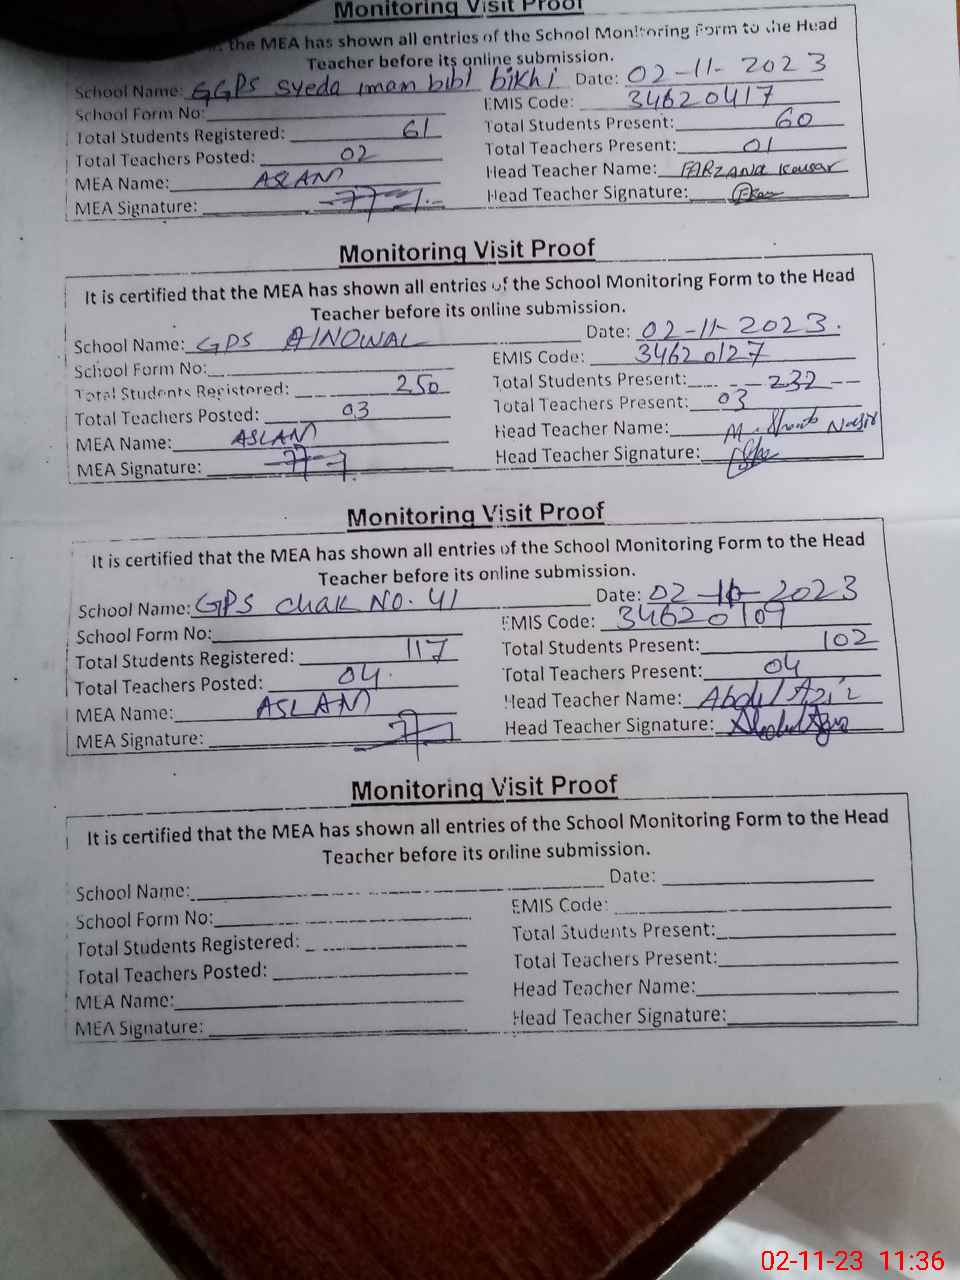 Monitoring Visit Proof
the MEA has shown all entries of the School Monitoring Form to the Head
Teacher before its online submission.
School Name: GGPS syeda imam bibi bikhi Date: 02-11-2023
School Form No: EMIS Code: 34620417
Total Students Registered: 61 Total Students Present: 60
Total Teachers Posted: 02 Total Teachers Present: 01
MEA Name: ASLAM Head Teacher Name: FARZANA Kousar
MEA Signature: Head Teacher Signature:
Monitoring Visit Proof
It is certified that the MEA has shown all entries of the School Monitoring Form to the Head
Teacher before its online submission.
School Name: GPS AINOWAL Date: 02-11-2023.
School Form No: EMIS Code: 34620127
Total Students Registered: 250 Total Students Present: 232
Total Teachers Posted: 03 Total Teachers Present: 03
MEA Name: ASLAM Head Teacher Name: M. Nasir
MEA Signature: Head Teacher Signature:
Monitoring Visit Proof
It is certified that the MEA has shown all entries of the School Monitoring Form to the Head
Teacher before its online submission.
School Name: GPS chak NO. 41 Date: 02-11-2023
School Form No: EMIS Code: 34620109
Total Students Registered: 117 Total Students Present: 102
Total Teachers Posted: 04 Total Teachers Present: 04
MEA Name: ASLAM Head Teacher Name: Abdul Aziz
MEA Signature: Head Teacher Signature:
Monitoring Visit Proof
It is certified that the MEA has shown all entries of the School Monitoring Form to the Head
Teacher before its online submission.
School Name: Date:
School Form No: EMIS Code:
Total Students Registered: Total Students Present:
Total Teachers Posted: Total Teachers Present:
MEA Name: Head Teacher Name:
MEA Signature: Head Teacher Signature:
02-11-23 11:36